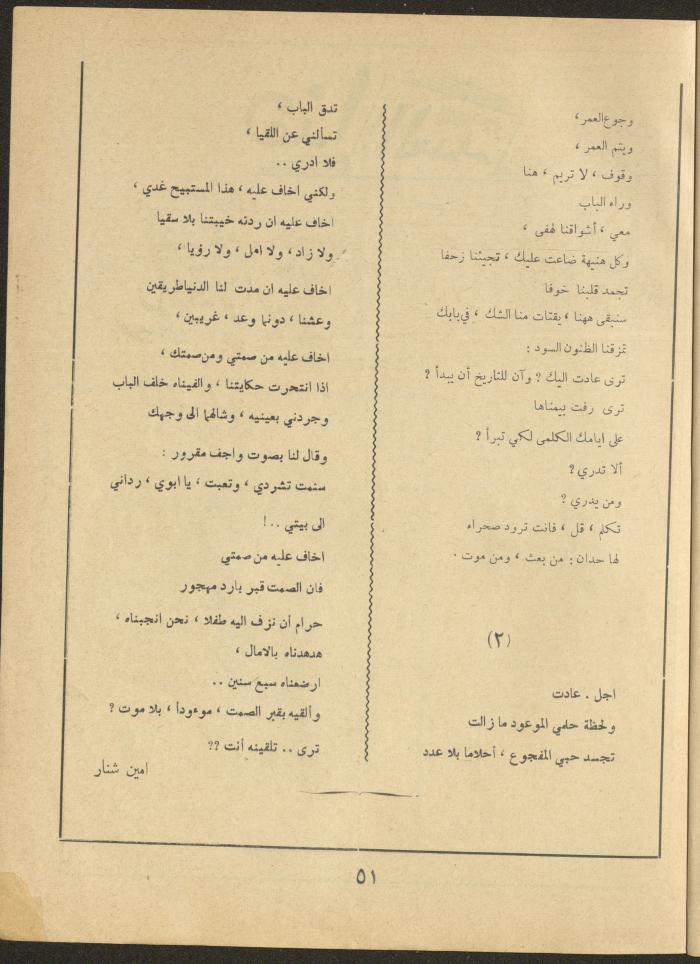 وجوع العمر،
ويتم العمر،
وقوف، لا تريم، هنا
وراء الباب
معي، أشواقنا لهفى،
وكل هنيهة ضاعت عليك، تجيئنا زحفا
تجمد قلبنا خوفا
سنبقى ههنا، يقتات منا الشك، في بابك
تمزقنا الظنون السود:
ترى عادت اليك؟ وآن للتاريخ أن يبدأ؟
ترى رفت بيمناها
على ايامك الكلمى لكي تبرأ؟
ألا تدري؟
ومن يدري؟
تكلم، قل، فانت ترود صحراء
لها حدان: من بعث، ومن موت.
(٢)
اجل. عادت
ولحظة حلمي الموعود ما زالت
تجسد حبي المفجوع، أحلاما بلا عدد
تدق الباب،
تسألني عن اللقيا،
فلا ادري..
ولكني اخاف عليه، هذا المستبيح غدي،
اخاف عليه ان ردته خيبتنا بلا سقيا
ولا زاد، ولا امل، ولا رؤيا،
اخاف عليه ان مدت لنا الدنيا طريقين
وعشنا، دونما وعد، غريبين،
اخاف عليه من صمتي ومن صمتك،
اذا انتحرت حكايتنا، والفيناه خلف الباب
وجردني بعينيه، وشالهما الى وجهك
وقال لنا بصوت واجف مقرور:
سئمت تشردي، وتعبت، يا ابوي، رداني
الى بيتي..!
اخاف عليه من صمتي
فان الصمت قبر بارد مهجور
حرام أن نزف اليه طفلا، نحن انجبناه،
هدهدناه بالامال،
ارضعناه سبع سنين..
وألقيه بقبر الصمت، موءوداً، بلا موت؟
ترى.. تلقينه أنت؟؟
امين شنار
٥١